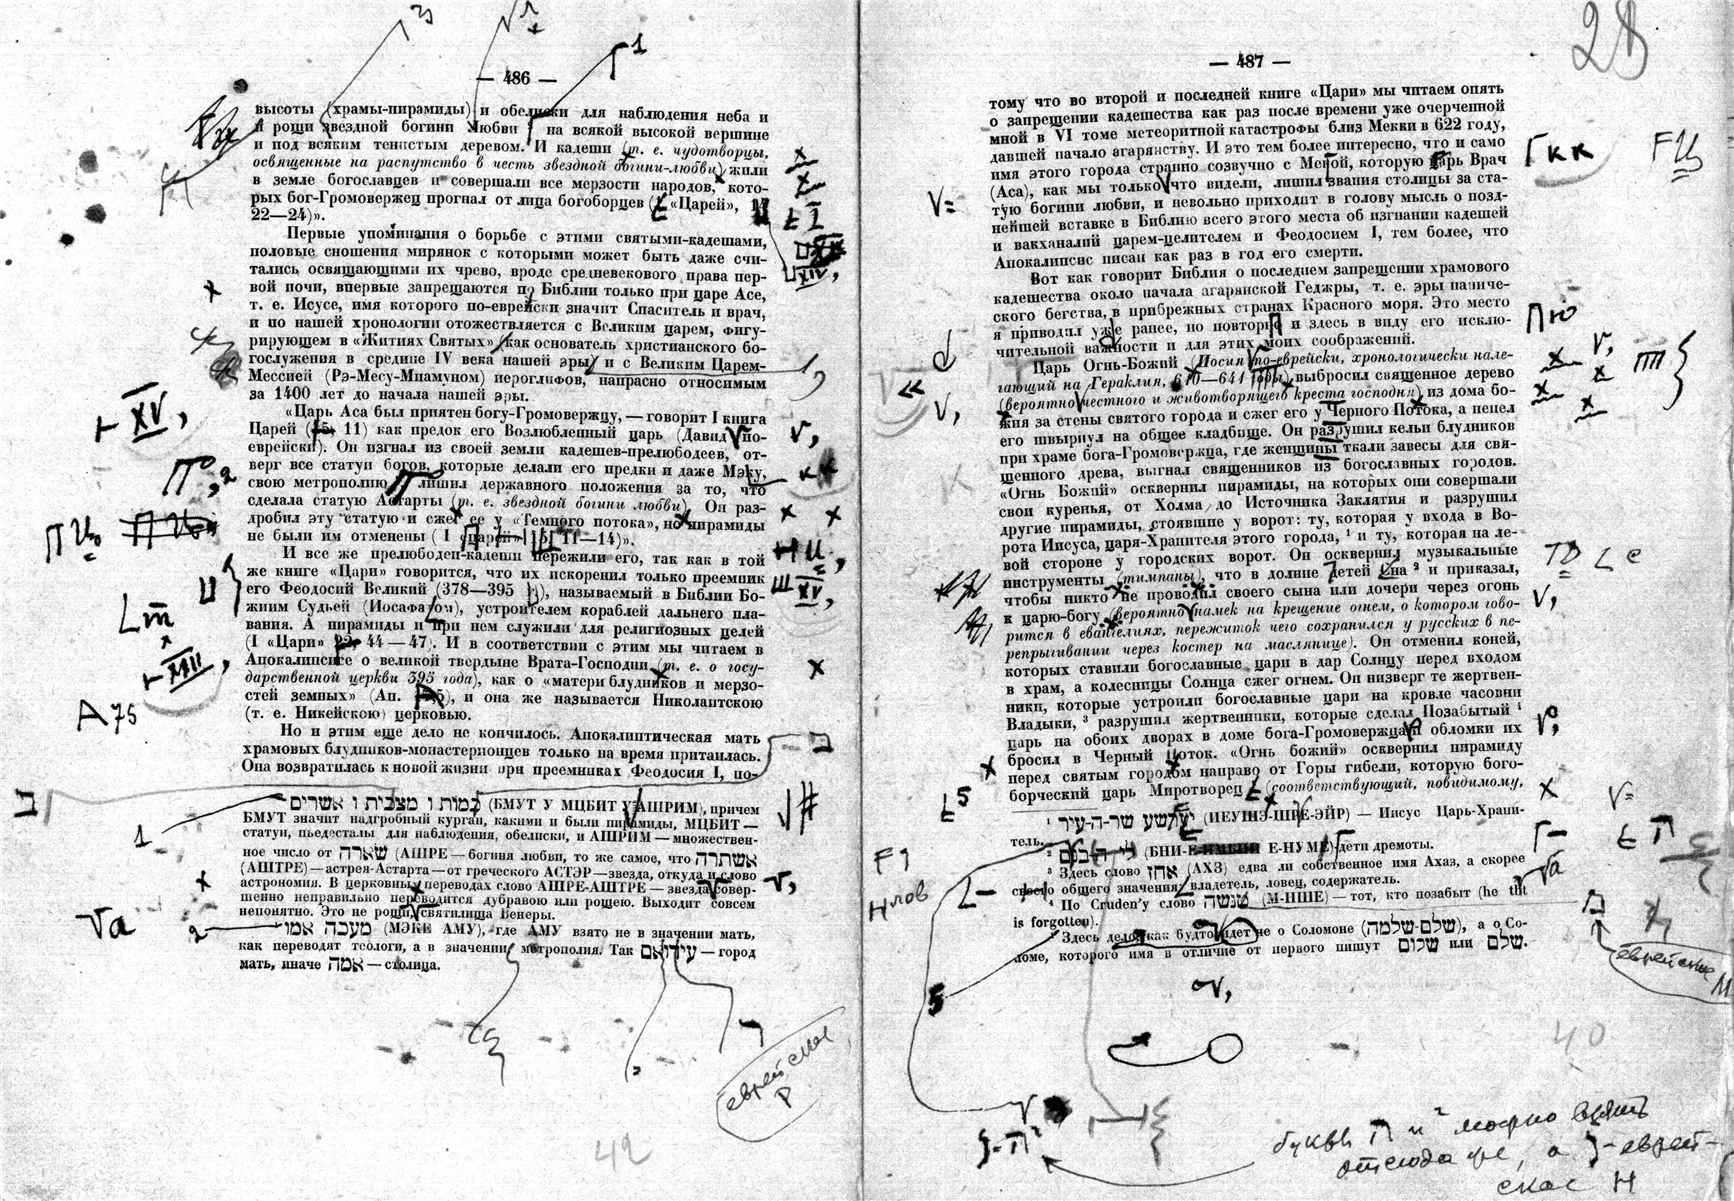 — 486 —
высоты (храмы-пирамиды) и обелиски для наблюдения неба и
и рощи звездной богини Любви на всякой высокой вершине
и под всяким тенистым деревом. И кадеши (т. е. чудотворцы,
освященные на распутство в честь звездной богини-любви) жили
в земле богославцев и совершали все мерзости народов, кото-
рых бог-Громовержец прогнал от лица богоборцев ( «Царей»,
22—24)».
Первые упоминания о борьбе с этими святыми-кадешами,
половые сношения мирянок с которыми может быть даже счи-
тались освящающими их чрево, вроде средневекового права пер-
вой ночи, впервые запрещаются по Библии только при царе Асе,
т. е. Исусе, имя которого по-еврейски значит Спаситель и врач,
и по нашей хронологии отожествляется с Великим царем, фигу-
рирующем в «Житиях Святых» как основатель христианского бо-
гослужения в средине IV века нашей эры и с Великим Царем-
Мессией (Рэ-Месу-Миамуном) иероглифов, напрасно относимым
за 1400 лет до начала нашей эры.
«Царь Аса был приятен богу-Громовержцу, — говорит I книга
Царей ( 11) как предок его Возлюбленный царь (Давид по-
еврейски). Он изгнал из своей земли кадешев-прелюбодеев, от-
верг все статуи богов, которые делали его предки и даже Мэку,
свою метрополию лишил державного положения за то, что
сделала статую Астарты (т. е. звездной богини любви). Он раз-
дробил эту статую и сжег ее у «Темного потока», но пирамиды
не были им отменены ( I 11—14)».
И все же прелюбодеи-кадеши пережили его, так как в той
же книге «Цари» говорится, что их искоренил только преемник
его Феодосий Великий (378—395 ), называемый в Библии Бо-
жиим Судьей (Иосафатом), устроителем кораблей дальнего пла-
вания. А пирамиды и при нем служили для религиозных целей
(I «Цари» 44—47). И в соответствии с этим мы читаем в
Апокалипсисе о великой твердыне Врата-Господни (т. е. о госу-
дарственной церкви 395 года), как о «матери блудников и мерзо-
стей земных» (Ап. ), и она же называется Николаитскою
(т. е. Никейскою) церковью.
Но и этим еще дело не кончилось. Апокалиптическая мать
храмовых блудников-монастерионцев только на время притаилась.
Она возвратилась к новой жизни при преемниках Феодосия I, по-
1 במות ו מצבית ו אשרים (БМУТ У МЦБИТ У АШРИМ), причем
БМУТ значит надгробный курган, какими и были пирамиды, МЦБИТ —
статуи, пьедесталы для наблюдения, обелиски, и АШРИМ — множествен-
ное число от שארה (АШРЕ — богиня любви, то же самое, что אשתרה
(АШТРЕ) — астрея-Астарта — от греческого АСТЭР — звезда, откуда и слово
астрономия. В церковных переводах слово АШРЕ-АШТРЕ — звезда совер-
шенно неправильно переводится дубравою или рощею. Выходит совсем
непонятно. Это не рощи, святилища Венеры.
2 מעכה אמו (МЭКЕ АМУ), где АМУ взято не в значении мать,
как переводят теологи, а в значении метрополия. Так — город
мать, иначе אמה — столица.
еврейская Р
42
28
— 487 —
тому что во второй и последней книге «Цари» мы читаем опять
о запрещении кадешества как раз после времени уже очерченной
мной в VI томе метеоритной катастрофы близ Мекки в 622 году,
давшей начало агарянству. И это тем более интересно, что и само
имя этого города странно созвучно с Мекой, которую царь Врач
(Аса), как мы только что видели, лишил звания столицы за ста-
тую богини любви, и невольно приходит в голову мысль о позд-
нейшей вставке в Библию всего этого места об изгнании кадешей
и вакханалий царем-целителем и Феодосием I, тем более, что
Апокалипсис писан как раз в год его смерти.
Вот как говорит Библия о последнем запрещении храмового
кадешества около начала агарянской Геджры, т. е. эры паниче-
ского бегства, в прибрежных странах Красного моря. Это место
я приводил уже ранее, но повторю и здесь в виду его исклю-
чительной важности и для этих моих соображений.
Царь Огнь-Божий (Иосия по-еврейски, хронологически нале-
гающий на Гераклия, 610—641 годы) выбросил священное дерево
(вероятно честного и животворящего креста господня) из дома бо-
жия за стены святого города и сжег его у Черного Потока, а пепел
его швырнул на общее кладбище. Он разрушил кельи блудников
при храме бога-Громовержца, где женщины ткали завесы для свя-
щенного древа, выгнал священников из богославных городов.
«Огнь Божий» осквернил пирамиды, на которых они совершали
свои куренья, от Холма до Источника Заклятия и разрушил
другие пирамиды, стоявшие у ворот: ту, которая у входа в Во-
рота Иисуса, царя-Хранителя этого города, 1 и ту, которая на ле-
вой стороне у городских ворот. Он осквернил музыкальные
инструменты (тимпаны), что в долине детей Сна 2 и приказал,
чтобы никто не проводил своего сына или дочери через огонь
к царю-богу (вероятно намек на крещение огнем, о котором гово-
рится в евангелиях, пережиток чего сохранился у русских в пе-
репрыгивании через костер на маслянице). Он отменил коней,
которых ставили богославные цари в дар Солнцу перед входом
в храм, а колесницы Солнца сжег огнем. Он низверг те жертвен-
ники, которые устроили богославные цари на кровле часовни
Владыки, 3 разрушил жертвенники, которые сделал Позабытый 4
царь на обоих дворах в доме бога-Громовержца и обломки их
бросил в Черный Поток. «Огнь божий» осквернил пирамиду
перед святым городом направо от Горы гибели, которую бого-
борческий царь Миротворец (соответствующий, повидимому,
1 שר-ה-עיר (ИЕУШЭ-ШРЕ-ЭЙР) — Иисус Царь-Храни-
тель.
2 (БНИ-Е Е-НУМЕ) дети дремоты.
3 Здесь слово אחז (АХЗ) едва ли собственное имя Ахаз, а скорее
своего общего значения владетель, ловец, содержатель.
4 По Cruden'у слово מנשה (М-НШЕ) — тот, кто позабыт (he tht
is forgotten).
Здесь дело как будто идет не о Соломоне (שלם-שלמה), а о Со-
ломе, которого имя в отличие от первого пишут שלום или שלם.
еврейские М
40
буквы П и 2 можно взять
отсюда же, а }-еврей-
ское Н